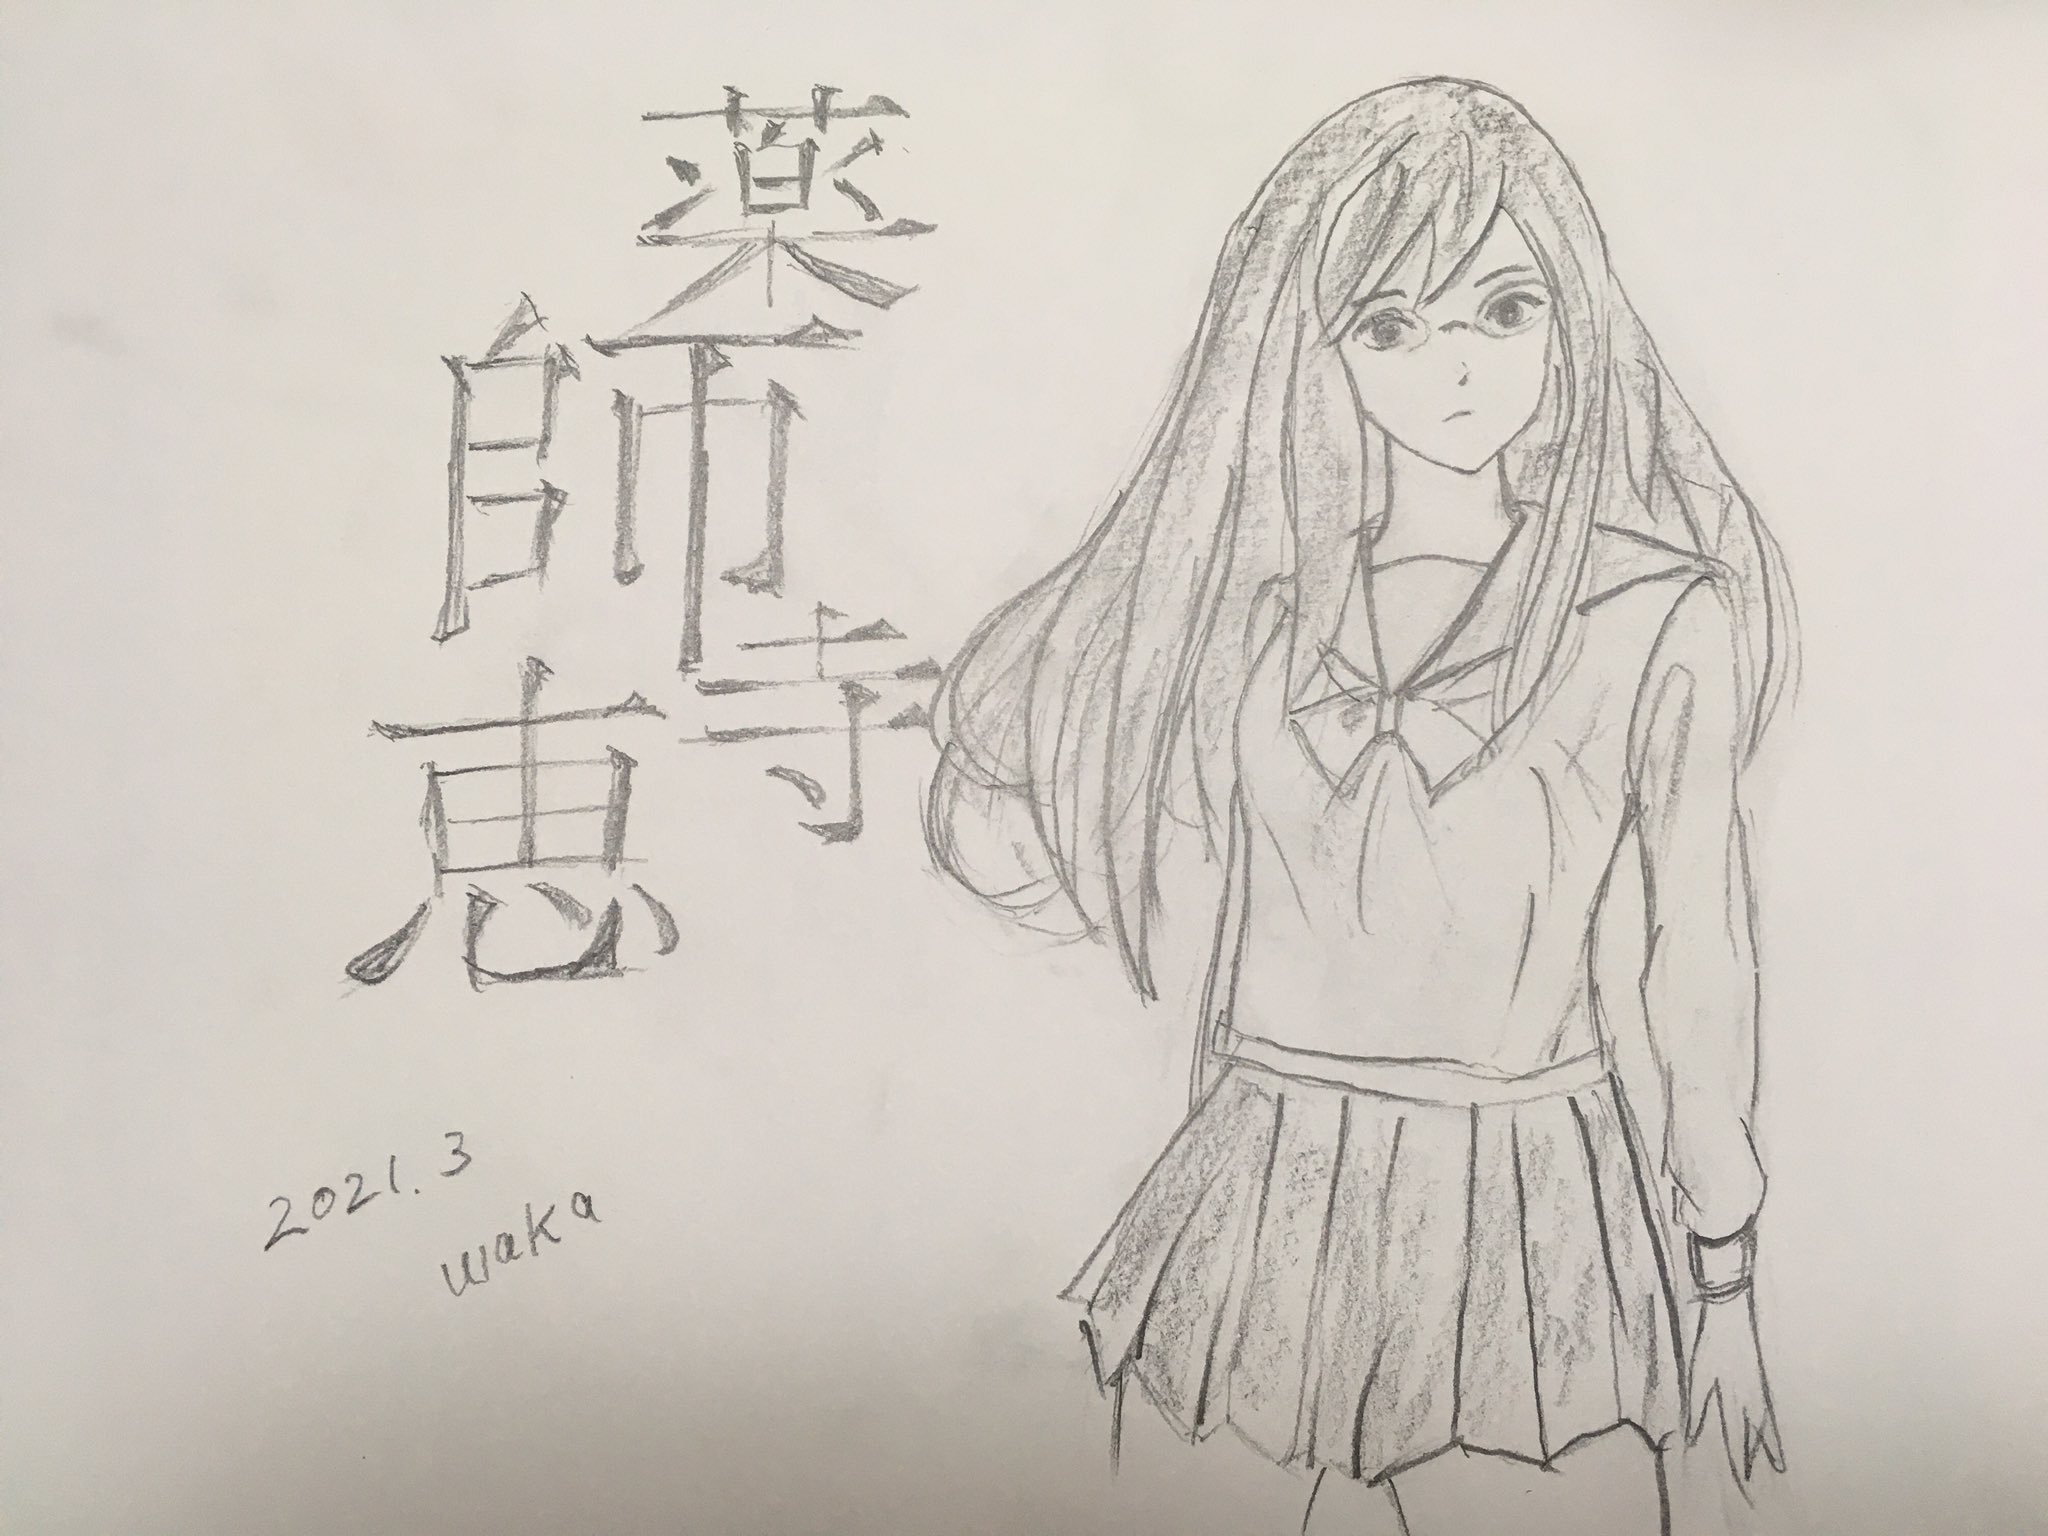 薬師寺恵
2021.3
waka